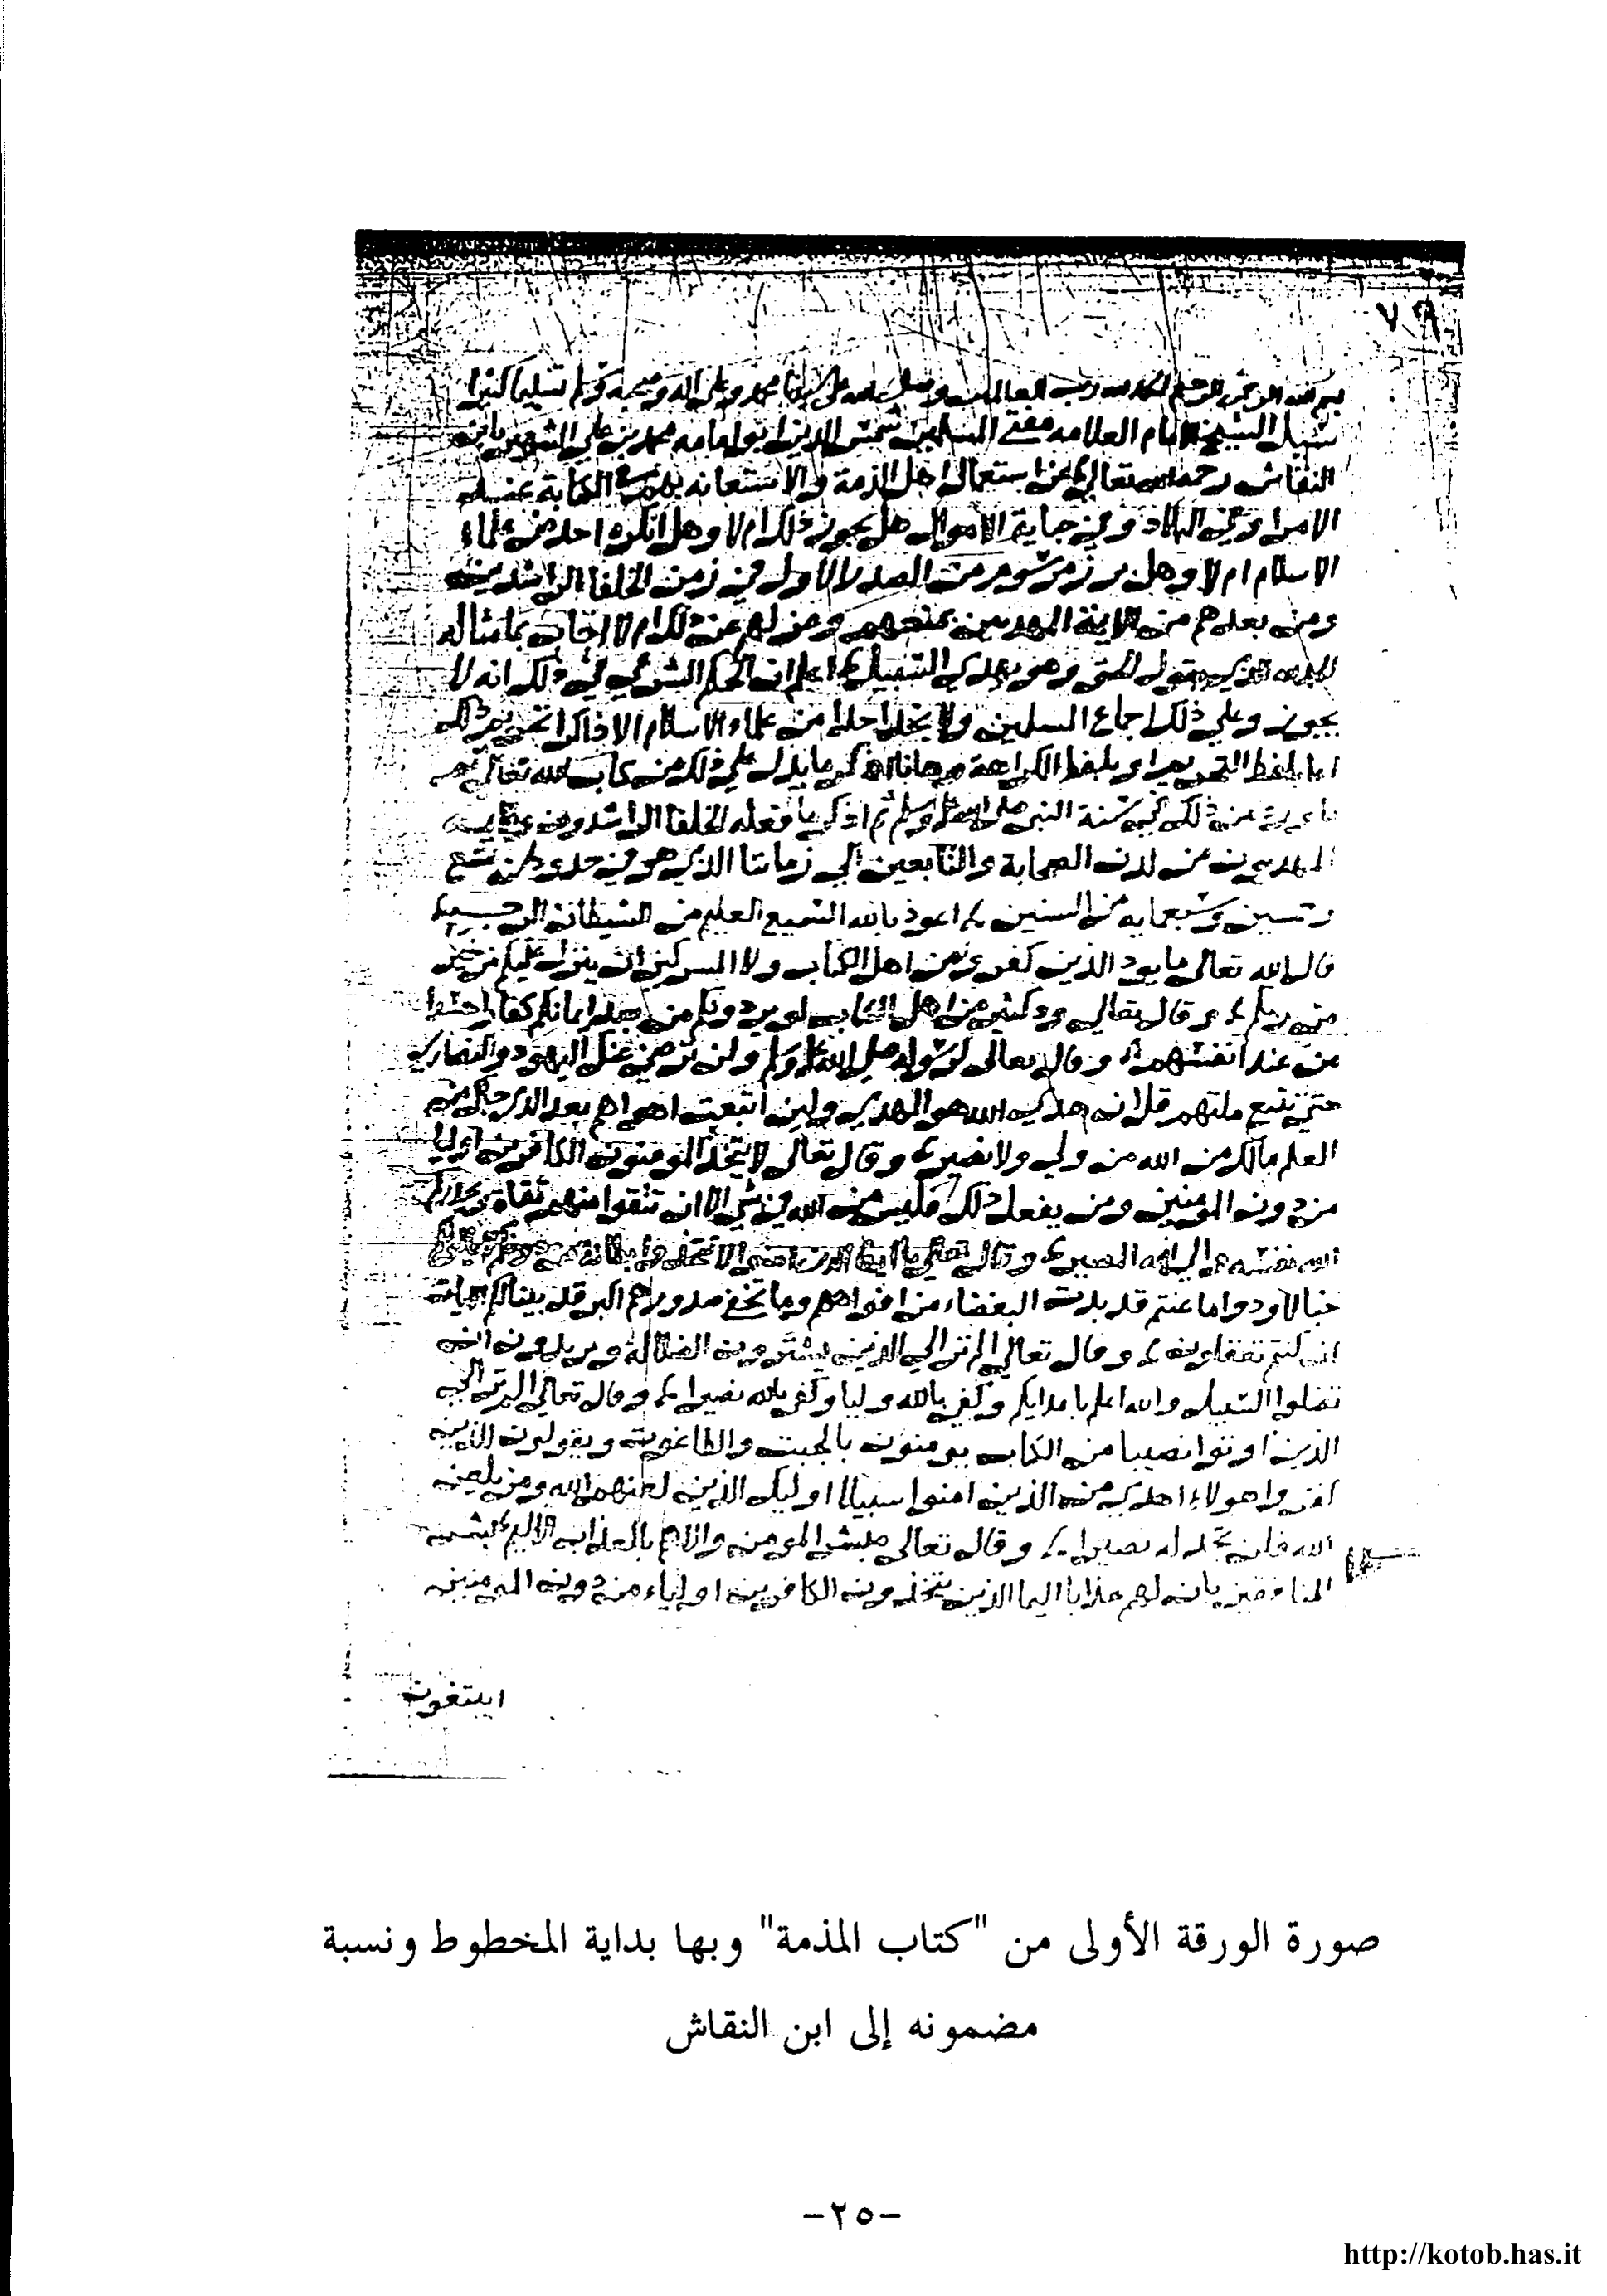 ٧٩
بسم الله الرحمن الرحيم الحمد لله رب العالمين وصلى الله على سيدنا محمد وعلى اله وصحبه وسلم تسليما كثيرا
سيل الشيخ الامام العلامه مفتي المسلمين شمس الدين ابو امامه محمد بن علي الشهير بابن
النقاش رحمه الله تعالى عن استعمال اهل الذمة والاستعانه بهم في الكتابة عند
الامرا وفي البلاد وفي جباية الاموال هل يجوز ذلك ام لا وهل انكره احد من علماء
الاسلام ام لا وهل من الصدر الاول في زمن الخلفا الراشدين
ومن بعدهم من الايمة المهديين بمنعهم عن ذلك ام لا اجاب بما مثاله
الحمد لله الذي يقول الحق وهو يهدي السبيل اعلم ان الحكم الشرعي في ذلك انه لا
يجوز وعلى ذلك اجماع المسلمين ولا نجد احدا من علماء الاسلام الا ذاكرا تحريم ذلك
اما بلفظ التحريم او بلفظ الكراهة وهانا اذكر ما يدل على ذلك من كتاب الله تعالى ثم
من ذلك في سنة النبي صلى الله عليه وسلم ثم اذكر ما فعله الخلفا الراشدون
المهديين من لدن الصحابة والتابعين الى زماننا الذي هو في حدود سن تسع
وتسين وسبعمايه من السنين اعوذ بالله السميع العليم من الشيطان الرجيم
قال الله تعالى ما يود الذين كفروا من اهل الكتاب ولا المسركين ان ينزل عليكم من خير
من ربكم وقال تعالى ود كثير من اهل الكتاب لو يردونكم من بعد ايمانكم كفارا حسدا
من عند انفسهم وقال تعالى لرسوله صلى الله عليه وسلم ولن ترضى عنك اليهود والنصارى
حتى تتبع ملتهم قل ان هدى الله هو الهدى ولين اتبعت اهواهم بعد الذي جاك من
العلم مالك من الله من ولي ولا نصير وقال تعالى لا يتخذ المومنون الكافرين اوليا
من دون المومنين ومن يفعل ذلك فليس من الله في شي الا ان تتقوا منهم تقاة ويحذركم
الله نفسه والى الله المصير وقال تعالى يا ايها الذين امنوا لا تتخذوا بطانة من دونكم لا يالونكم
خبالا ودوا ما عنتم قد بدت البغضاء من افواههم وما تخفي صدورهم اكبر قد بينا لكم الايات
ان كنتم تعقلون وقال تعالى الم تر الى الذين يشترون الضلالة ويريدون ان
تضلوا السبيل والله اعلم باعدايكم وكفى بالله وليا وكفى بالله نصيرا وقال تعالى الم تر الى
الذين اوتوا نصيبا من الكتاب يومنون بالجبت والطاغوت ويقولون للذين
كفروا هولاء اهدى من الذين امنوا سبيلا اوليك الذين لعنهم الله ومن يلعن
الله فلن تجد له نصيرا وقال تعالى بالعذاب الاليم بشر
المنافقين بان لهم عذابا اليما الذين يتخذون الكافرين اولياء من دون المومنين
ايبتغون
صورة الورقة الأولى من "كتاب المذمة" وبها بداية المخطوط ونسبة
مضمونه إلى ابن النقاش
-٢٥-
http://kotob.has.it